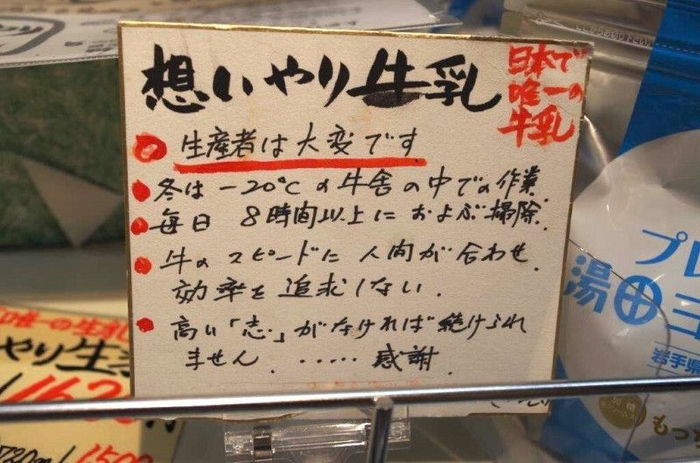 想いやり牛乳
日本で
唯一の
牛乳
生産者は大変です
冬は -20℃の牛舎の中での作業.
毎日 8時間以上におよぶ掃除.
牛のスピードに人間が合わせ.
効率を追求しない.
高い「志」がなければ続けられ
ません. ・・・・・ 感謝.
唯一の生乳
やり生
162
720ml
150
プロ
湯田ヨ
岩手県
もっち